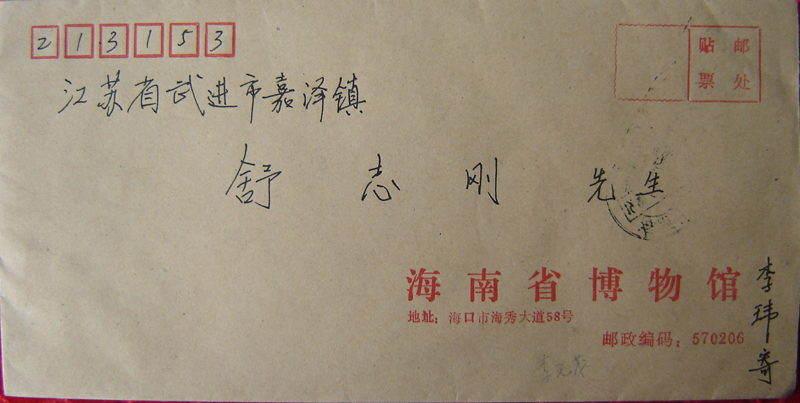 213153
贴 邮
票 处
江苏省武进市嘉泽镇
舒 志 刚 先生
海南省博物馆
地址：海口市海秀大道58号
邮政编码：570206
李玮寄